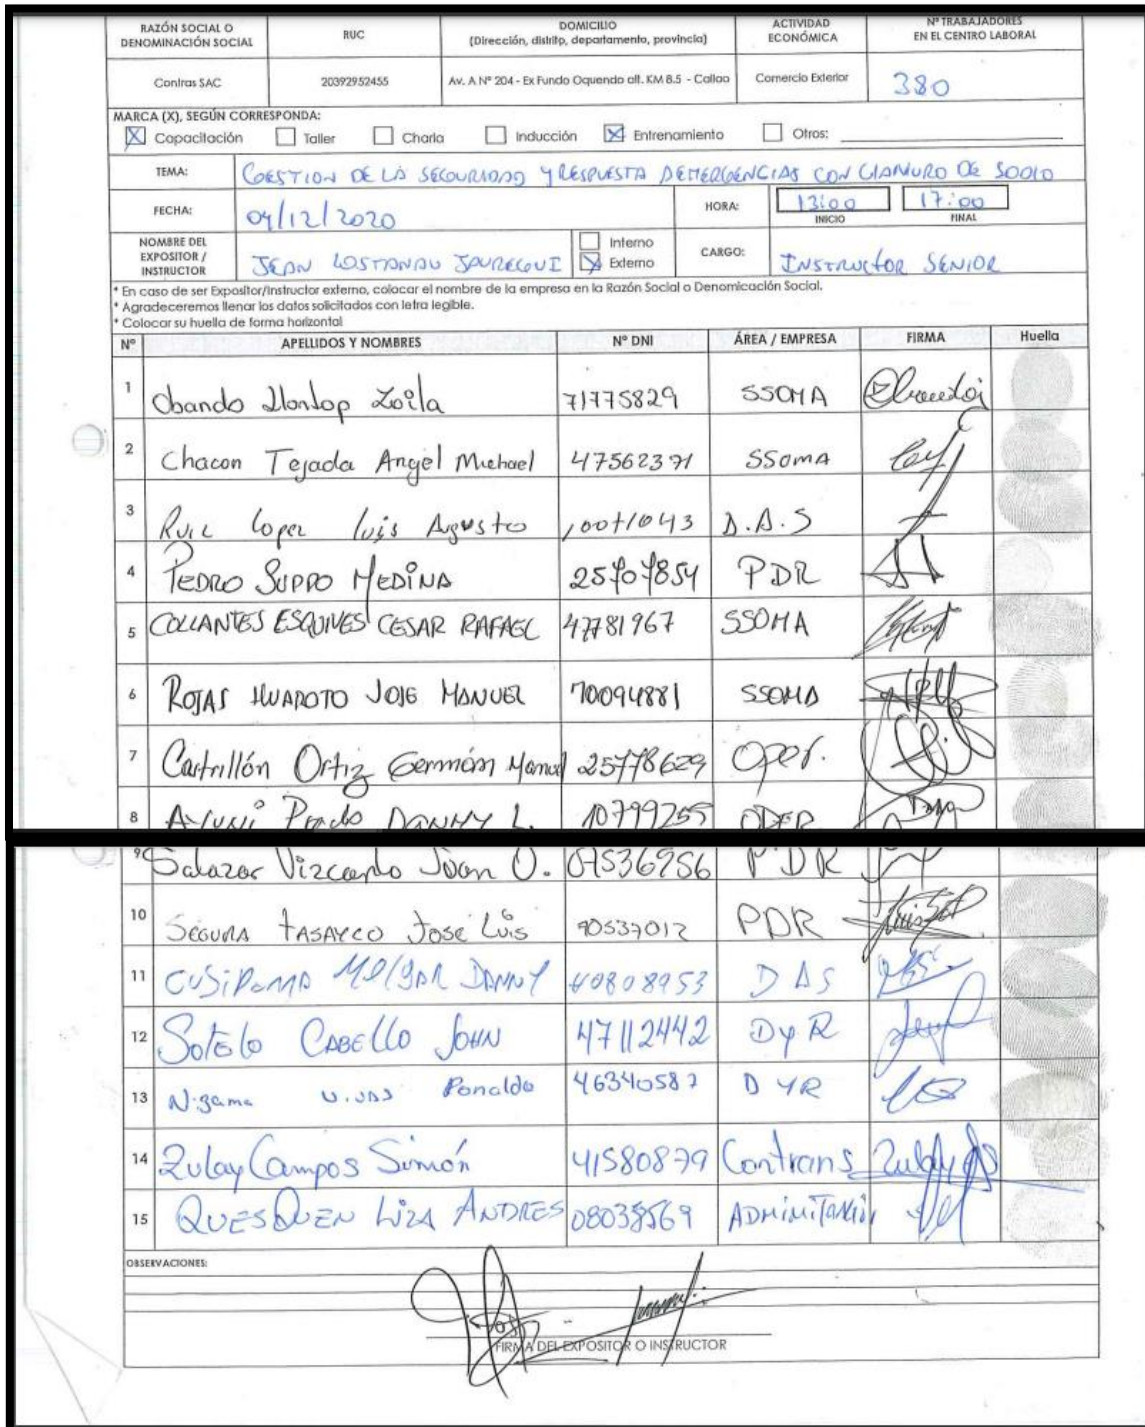 RAZÓN SOCIAL O DENOMINACIÓN SOCIAL RUC DOMICILIO (Dirección, distrito, departamento, provincia) ACTIVIDAD ECONÓMICA Nº TRABAJADORES EN EL CENTRO LABORAL
Contras SAC 20392952455 Av. A Nº 204 - Ex Fundo Oquendo alt. KM 8.5 - Callao Comercio Exterior 380
MARCA (X), SEGÚN CORRESPONDA:
X Capacitación Taller Charla Inducción X Entrenamiento Otros:
TEMA: GESTION DE LA SEGURIDAD Y RESPUESTA DEMERGENCIAS CON CIANURO DE SODIO
FECHA: 04/12/2020 HORA: 13:00 INICIO 17:00 FINAL
NOMBRE DEL EXPOSITOR / INSTRUCTOR JEAN LOSTANAU JAUREGUI Interno X Externo CARGO: INSTRUCTOR SENIOR
* En caso de ser Expositor/Instructor externo, colocar el nombre de la empresa en la Razón Social o Denomicación Social.
* Agradeceremos llenar los datos solicitados con letra legible.
* Colocar su huella de forma horizontal
Nº APELLIDOS Y NOMBRES Nº DNI ÁREA / EMPRESA FIRMA Huella
1 Obando Llontop Zoila 71775829 SSOMA
2 Chacon Tejada Angel Michael 47562371 SSOMA
3 Ruiz Lopez Luis Agusto D.A.S
4 PEDRO SUPPO MEDINA PDR
5 COLLANTES ESQUIVES CESAR RAFAEL 47781967 SSOMA
6 ROJAS HUAROTO JOSE MANUEL 70094881 SSOMA
7 Castrillón Ortiz Germán Manuel 25778629 Oper.
8 Prado DANNY L. 10799255 OPER
9 Salazar Vizcardo Juan O. 07536956 PDR
10 SEGURA TASAYCO José Luis 70537012 PDR
11 CUSIPUMA MELGAR DANNY 40808953 DAS
12 Sotelo CABELLO JOHN 47112442 DyR
13 Nizama Ronaldo 46340587 DYR
14 Zulay Campos Simón 41580879 Contrans
15 QUESQUEN LIZA ANDRES 08038569
OBSERVACIONES:
FIRMA DEL EXPOSITOR O INSTRUCTOR